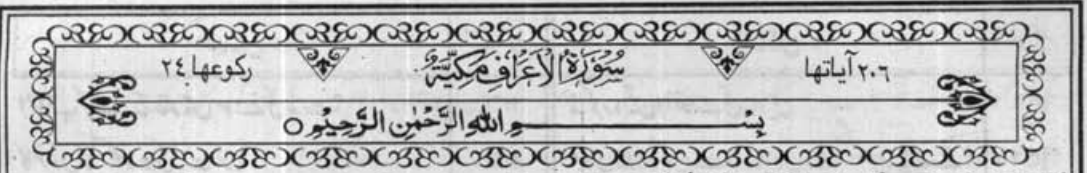 آیاتها ٢٠٦ سُوْرَةُ الْاَعْرَافِ مَكِّيَّةٌ ركوعها ٢٤
بِسْمِ اللهِ الرَّحْمٰنِ الرَّحِيْمِ ○